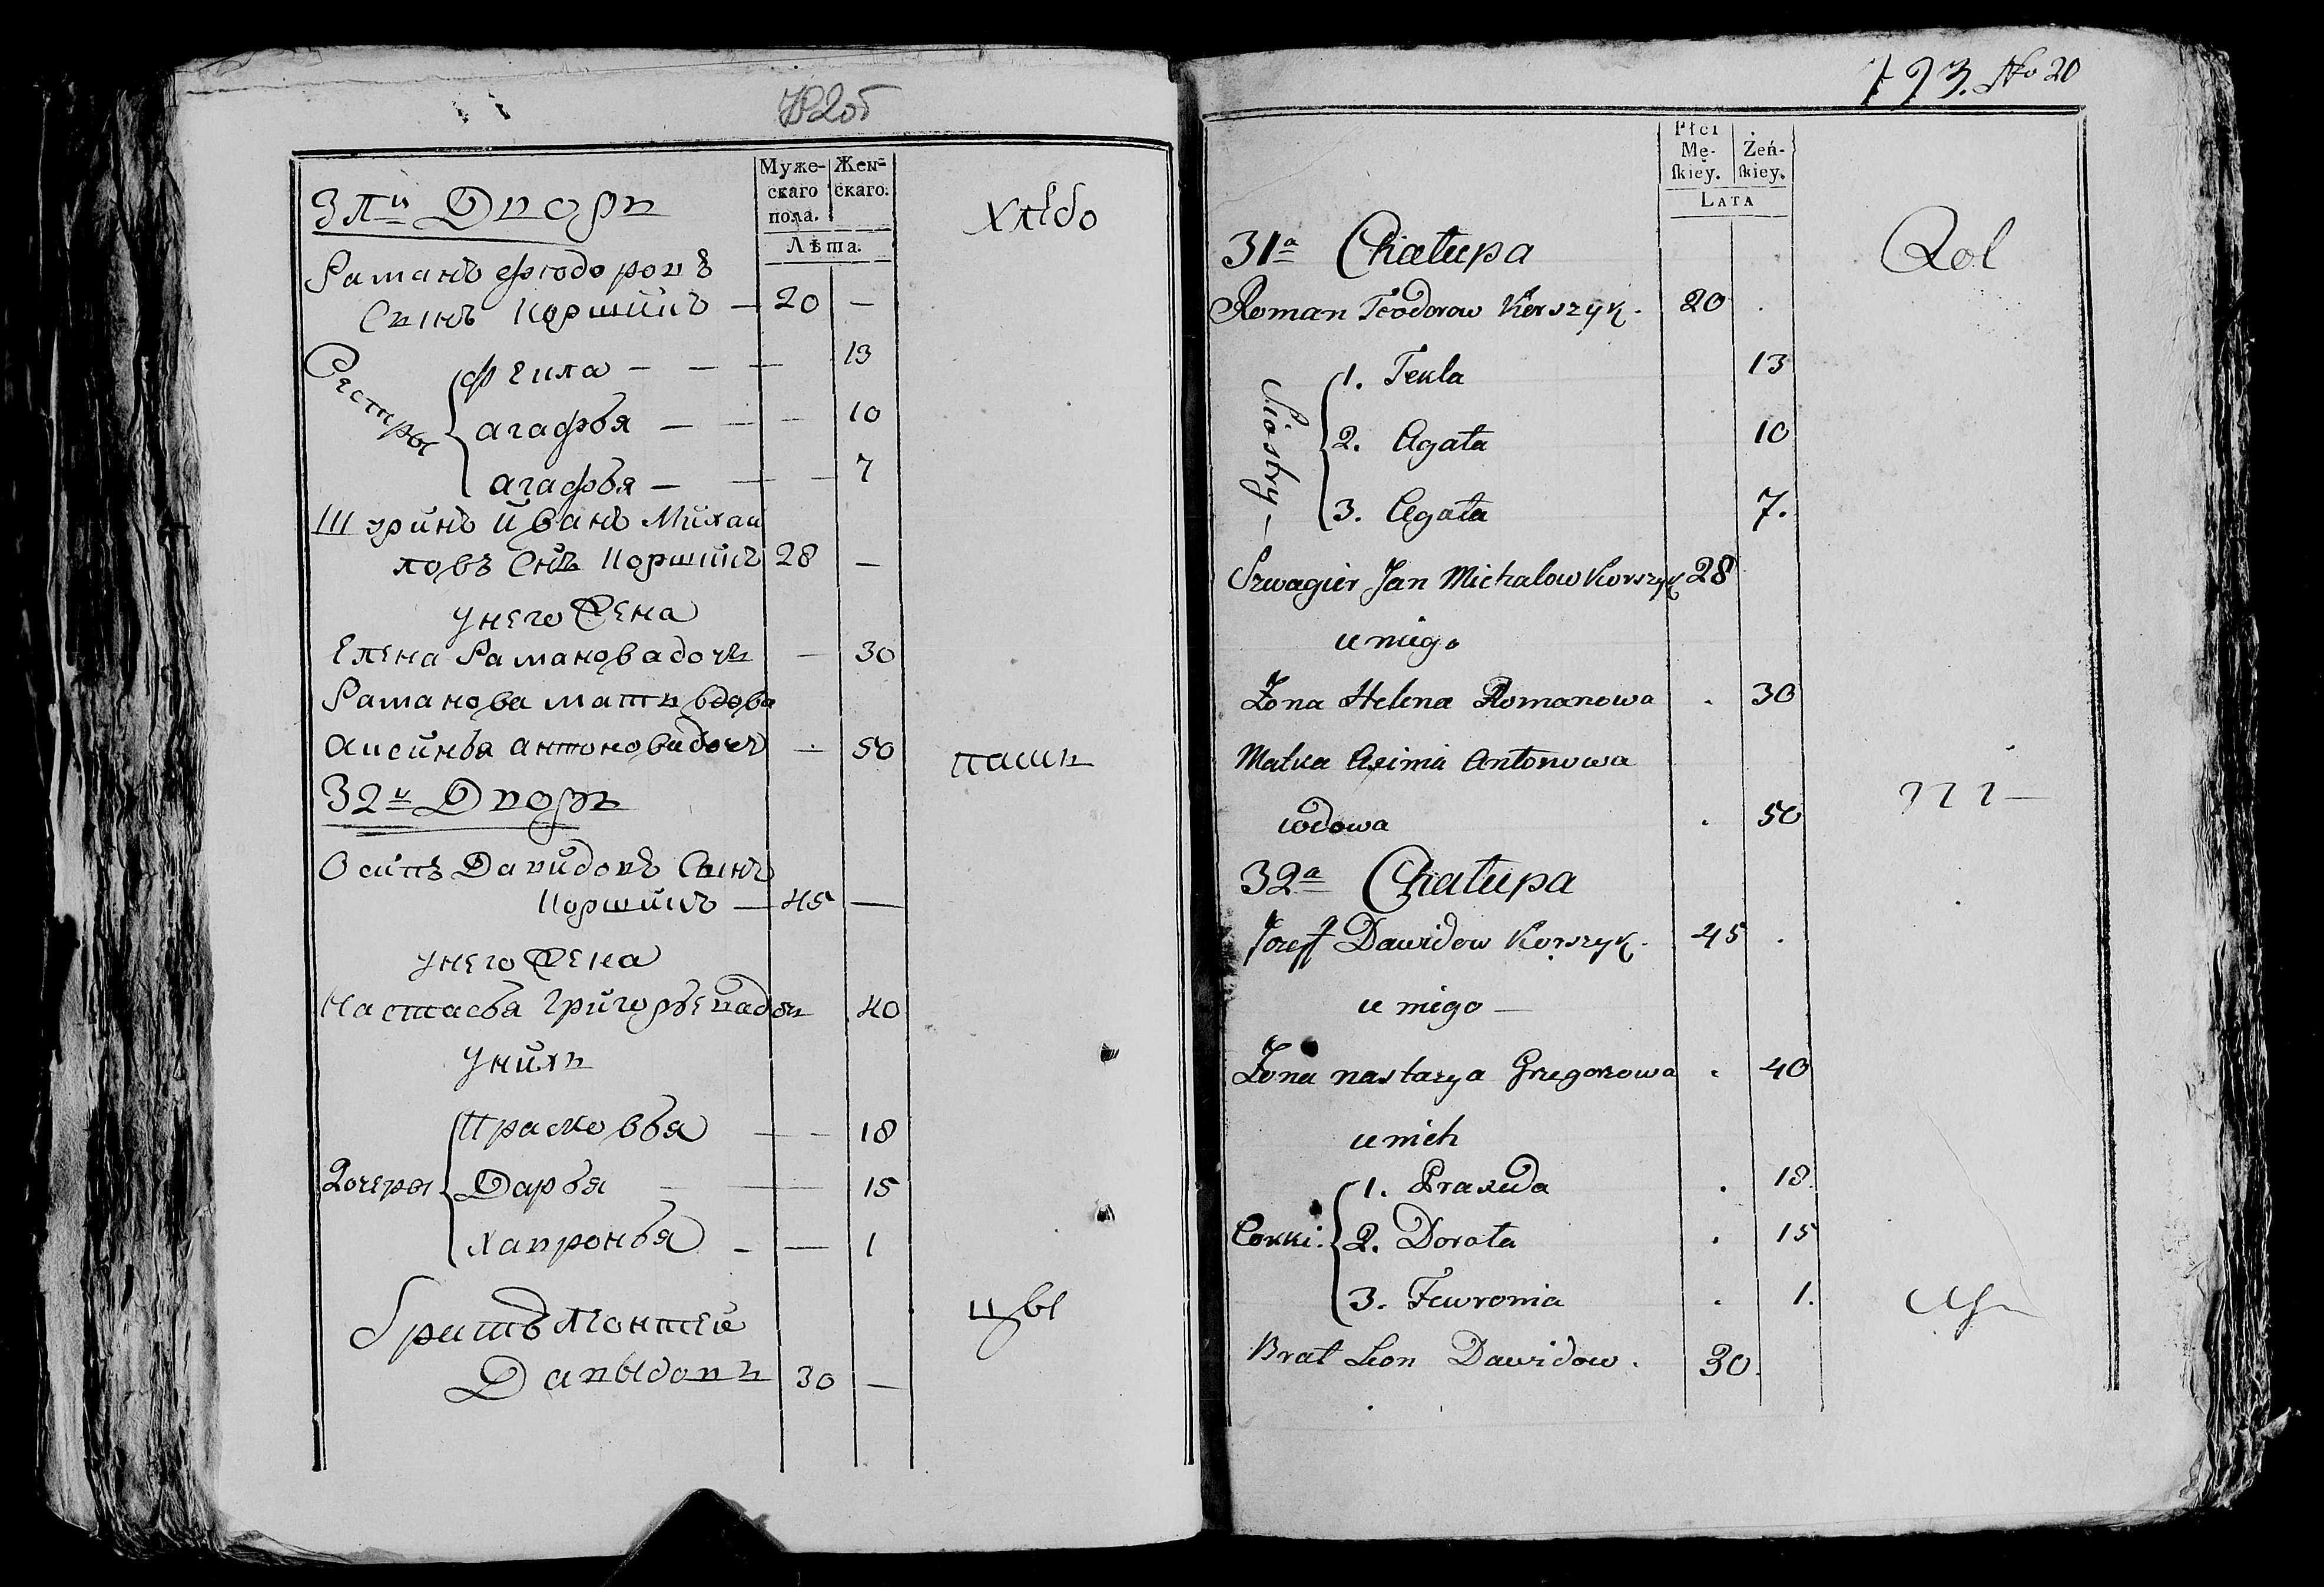 792об
Муже-
скаго
пола.
Жен-
скаго.
Лѣта.
31й Дворъ
Раманъ Фюдоровъ
Сынъ Коршикъ — 20 —
Сестры
Фекла — — — 13
агафья — — — 10
агафья — — — 7
Шуринъ Иванъ Михаи
ловъ Снъ Коршикъ 28 —
унего Жена
Елена Раманова дочь — 30
Раманова мать вдова
Аксинья антонова дочь — 50
32й Дворъ
Осипъ Давидовъ Сынъ
Коршикъ — 45 —
унего Жена
Настасья Григорьева дочь 40
унихъ
Дочеры
Прасковья — — 18
Дарья — — 15
Хавронья — — 1
Братъ Леонтей
Давыдовъ 30 —
хлѣбо
паши
цы
793. No 20
Płci
Mę-
skiey.
Żeń-
skiey.
LATA
31a Chałupa
Roman Teodorow Korszyk. 20 .
Siostry —
1. Tekla 13
2. Agata 10
3. Agata 7.
Szwagier Jan Michalow Korszyk 28
u niego
Żona Helena Romanowa . 30
Matka Axinia Antonowa
wdowa . 50
32a Chałupa
Jozeff Dawidow Korszyk. 45 .
u niego —
Żona nastazya Gregorowa . 40
u nich
Corki.
1. Praxeda . 18.
2. Dorota . 15
3. Fewronia . 1.
Brat Leon Dawidow. 30.
Rol
ni—